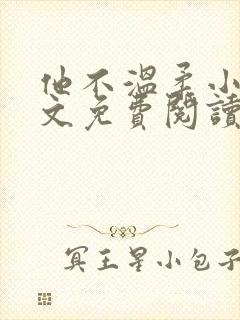 他不溫柔小
文免費閱讀
冥王星小包子